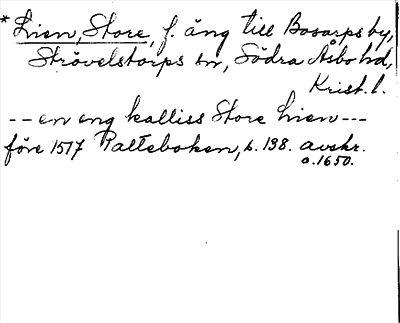 *Lien, Store, f. äng till Bosarps by,
Strövelstorps sn, Södra Åsbo hd,
Krist. l.
-- en eng kalliss Store Lien ---
före 1517 Palteboken, s. 198. avskr.
o. 1650.